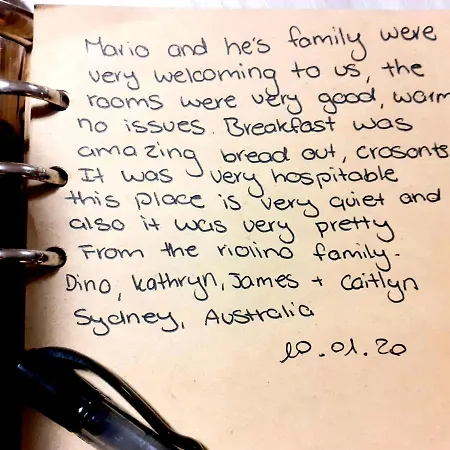 Mario and he's family were
very welcoming to us, the
rooms were very good, warm
no issues. Breakfast was
amazing bread out, crosonts
It was very hospitable
this place is very quiet and
also it was very pretty
From the riolino family.
Dino, Kathryn, James + Caitlyn
Sydney, Australia
10.01.20